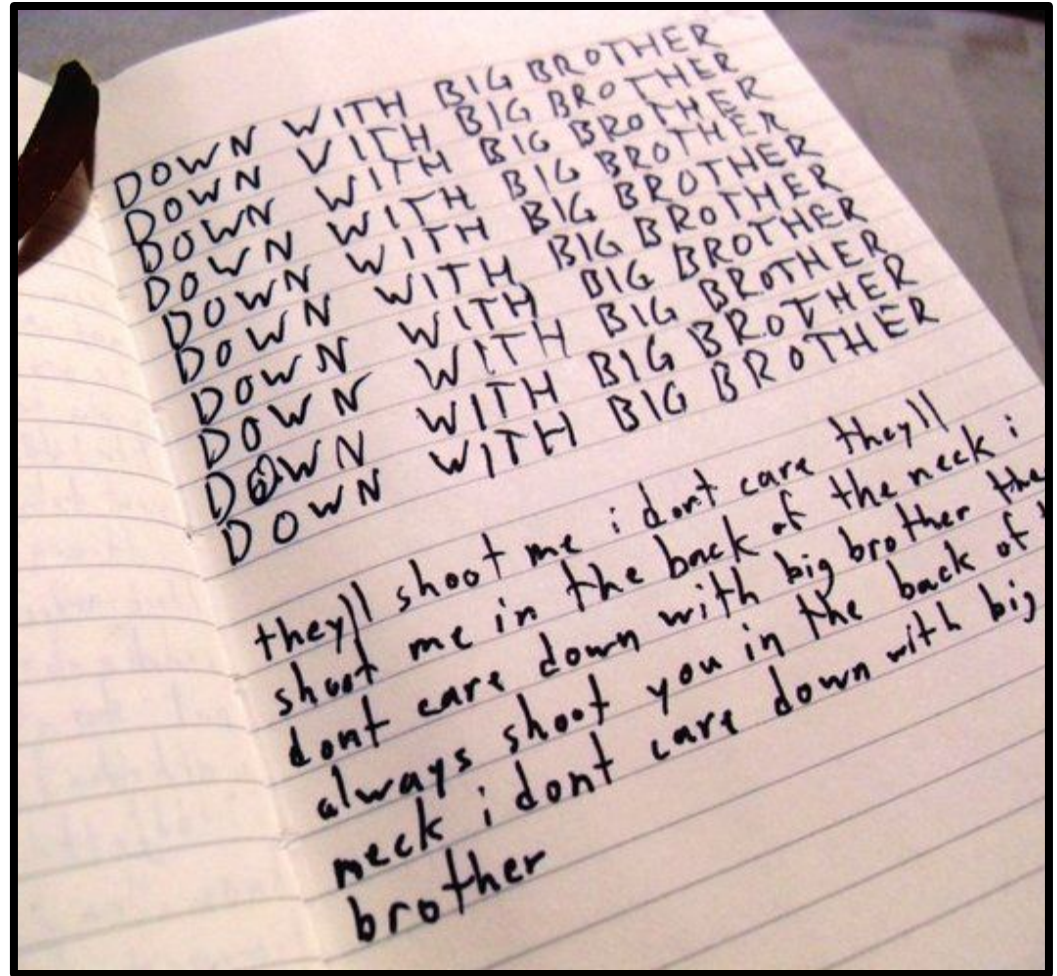 DOWN WITH BIG BROTHER
DOWN VITH BIG BROTHER
DOWN WITH BIG BROTHER
DOWN WITH BIG BROTHER
DOWN WITH BIG BROTHER
DOWN WITH BIG BROTHER
DOWN WITH BIG BROTHER
DOWN WITH BIG BROTHER
DOWN WITH BIG BROTHER
DOWN WITH BIG BROTHER
theyll shoot me i dont care theyll
shoot me in the back of the neck i
dont care down with big brother the
always shoot you in the back of
neck i dont care down with big
brother